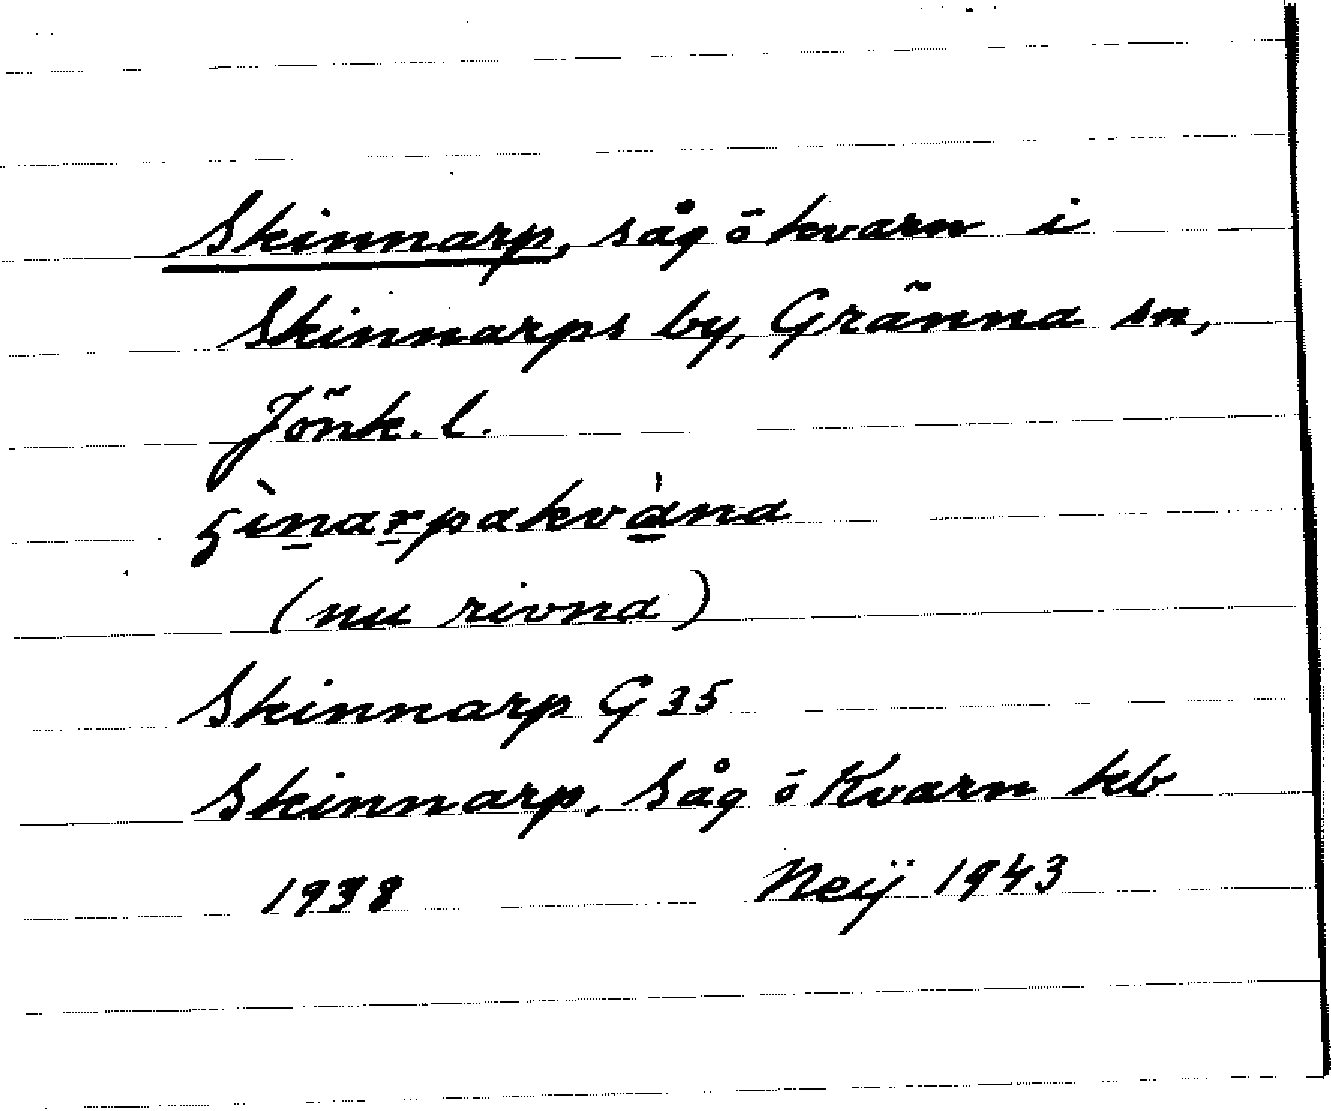 Skinnarp, såg ō kvarn i
Skinnarps by, Gränna sn,
Jönk. l.
(nu rivna)
Skinnarp G 35
Skinnarp, Såg ō Kvarn kb
1938 Neij 1943